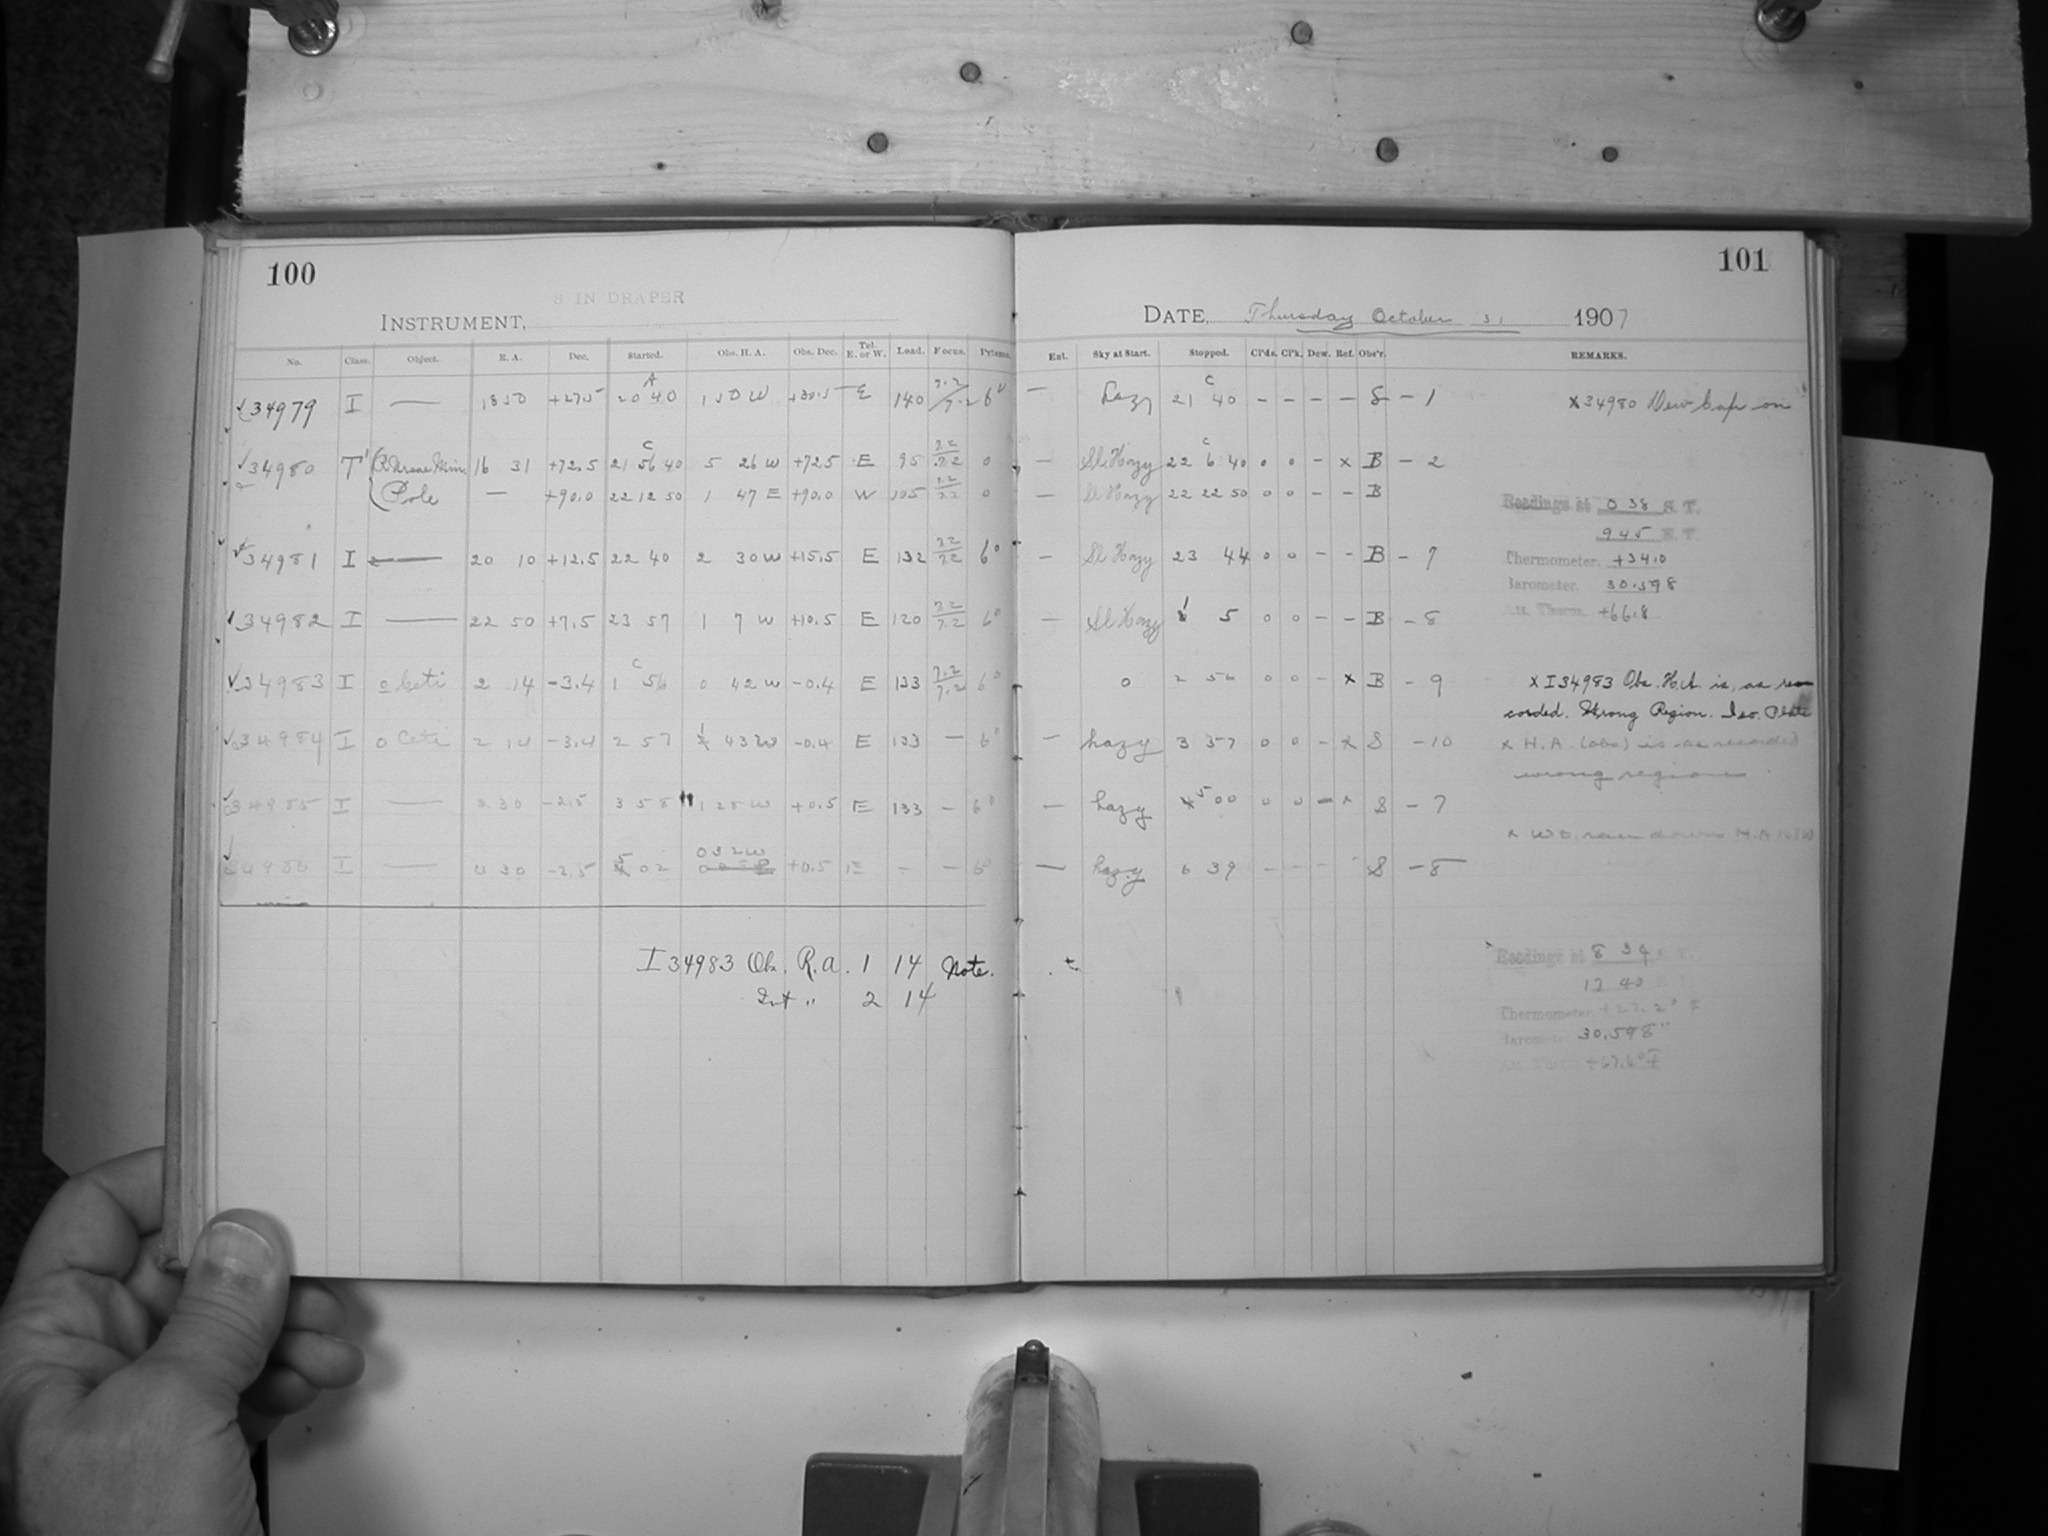 100
101
8 IN DRAPER
INSTRUMENT,
DATE, Thursday October 31 1907
No. Class. Object. R. A. Dec. Started. Obs. H. A. Obs. Dec. Tel. E. or W. Load. Focus. Prisms. Eat. Sky at Start. Stopped. Cl'ds. Cl'k. Dew. Ref. Obs'r. REMARKS.
√ 34979 I — 18 50 +27.5 A 20 40 1 50 W +30.5 E 140 7.2/7.2 6° — hazy C 21 40 – – – – S – 1 x34980 Dew Cap on
√ 34980 T' R. Ursae Min. 16 31 +72.5 C 21 56 40 5 26 W +72.5 E 95 7.2/7.2 0 — Sl. Hazy C 22 6 40 0 0 – x B – 2
Pole — +90.0 22 12 50 1 47 E +90.0 W 105 7.2/7.2 0 — Sl Hazy 22 22 50 0 0 – – B
Readings at 0 38 S. T.
9 45 E. T.
√ 34981 I — 20 10 +12.5 22 40 2 30 W +15.5 E 132 7.2/7.2 6° — Sl Hazy 23 44 0 0 – – B – 7
Thermometer. +34.0
Barometer. 30.598
Att. Therm. +66.8
√ 34982 I — 22 50 +7.5 23 57 1 7 W +10.5 E 120 7.2/7.2 6° — Sl Hazy 1 5 0 0 – – B – 8
√ 34983 I o Ceti 2 14 -3.4 C 1 56 0 42 W -0.4 E 133 7.2/7.2 6° 0 2 56 0 0 – x B – 9 x I34983 Obs. H.A. is, as re-
corded. Wrong Region. Iso. Plate
√ 34984 I o Ceti 2 14 -3.4 2 57 1 43 W -0.4 E 133 — 6° — hazy 3 57 0 0 – x S – 10 x H.A. (obs) is as recorded
wrong region
√ 34985 I — 2 30 -2.5 3 58 1 28 W +0.5 E 133 – 6° — hazy 5 00 0 0 – x S – 7
x W O. ran down H.A.
√ 34986 I — 4 30 -2.5 5 02 0 32 W +0.5 E – – 6° — hazy 6 39 – – – S – 8
I 34983 Obs. R.A. 1 14 Note.
Int " 2 14
Readings at 8 39
17 40
Thermometer. +27.2° F
Barometer 30.598"
Att. Therm. +67.6° F